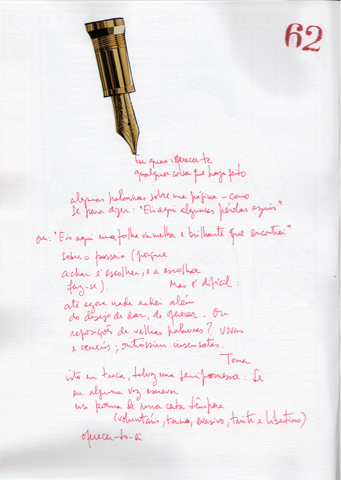 62
Eu quis oferecer-te
qualquer coisa que haja feito
algumas palavras sobre uma página - como
se para dizer: "Eis aqui algumas pedras azuis"
ou: "Eis aqui uma folha vermelha e brilhante que encontrei"
sobre o passeio (porque
achar é escolher, e a escolha
faz-se). Mas é difícil:
até agora nada achei além
do desejo de dar, de oferecer. Ou
reposições de velhas palavras? Vivas
e cruéis; outrossim insensatas.
Toma
isto em troca, talvez uma semi promessa: Se
eu alguma vez escrever
um poema de uma certa têmpera
(voluntário, terno, evasivo, triste e libertino)
oferecer-to-ei